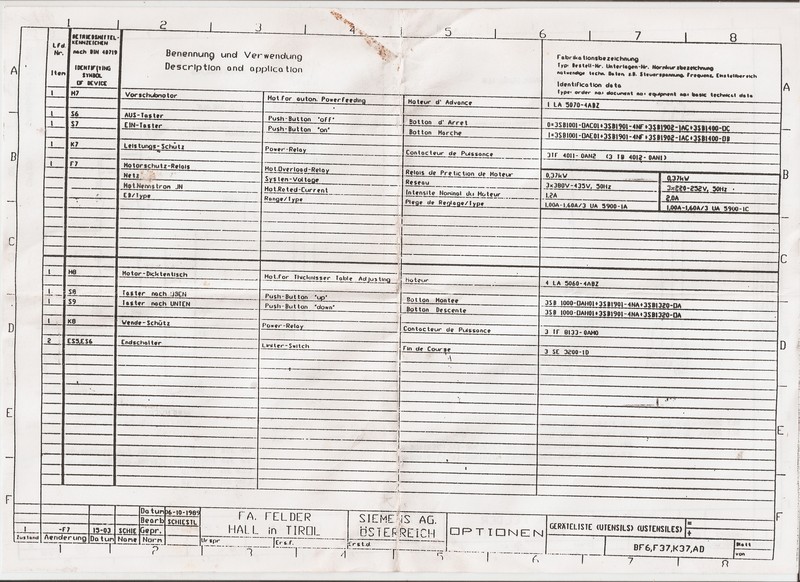 1 2 3 4 5 6 7 8
Lfd. Nr. Item
BETRIEBSMITTEL-KENNZEICHEN nach DIN 40719
IDENTIFYING SYMBOL OF DEVICE
Benennung und Verwendung
Description and application
Fabrikationsbezeichnung
Typ Bestell-Nr. Unterlagen-Nr. Normkurzbezeichnung
notwendige techn. Daten z.B. Steuerspannung, Frequenz, Einstellbereich
Identification data
Type: order no: document no: equipment no: basic technical data
1 M7 Vorschubmotor Mot.for autom. Powerfeeding Moteur d' Advance 1 LA 5070-4ABZ
1 S6 AUS-Taster Push-Button "off" Botton d' Arret 0+3SB1001-0AC01+3SB1901-4NF+3SB1902-1AC+3SB1400-0C
1 S7 EIN-Taster Push-Button "on" Botton Marche 1+3SB1001-0AE01+3SB1901-4NF+3SB1902-1AC+3SB1400-0B
1 K7 Leistungs-Schütz Power-Relay Contacteur de Puissance 3TF 4011-0AN2 (3 TB 4012-0AN1)
1 F7 Motorschutz-Relais Mot.Overload-Relay Relais de Pretiction de Moteur 0,37kW 0,37kW
Netz System-Voltage Reseau 3x380V-435V, 50Hz 3x220-252V, 50Hz
Mot.Nennstrom JN Mot.Rated-Current Intensite Nominal du Moteur 1.2A 2.0A
EB/Type Range/Type Plege de Reglage/Type 1,00A-1,60A/3 UA 5900-1A 1,00A-1,60A/3 UA 5900-1C
1 M8 Motor-Dicktentisch Mot.for Thicknisser Table Adjusting Moteur 4 LA 5060-4ABZ
1 S8 Taster nach OBEN Push-Button "up" Botton Montee 3SB 1000-0AH01+3SB1901-4NA+3SB1320-0A
1 S9 Taster nach UNTEN Push-Button "down" Botton Descente 3SB 1000-0AH01+3SB1901-4NA+3SB1320-0A
1 K8 Wende-Schütz Power-Relay Contacteur de Puissance 3 TF 8133-0AM0
2 ES5,ES6 Endschalter Limiter-Switch Fin de Course 3 SE 3200-1D
A B C D E F
A B C D E F
1 -F7 15-03 SCHIE
Zustand Aenderung Datum Name Norm
Datum 06-10-1989
Bearb SCHIESTL
Gepr.
FA. FELDER
HALL in TIROL
Urspr Ers.f. Ers.d.
SIEMENS AG.
ÖSTERREICH
OPTIONEN
GERÄTELISTE (UTENSILS) (USTENSILES)
= +
BF6,F37,K37,AD
Blatt
von
1 2 3 4 5 6 7 8